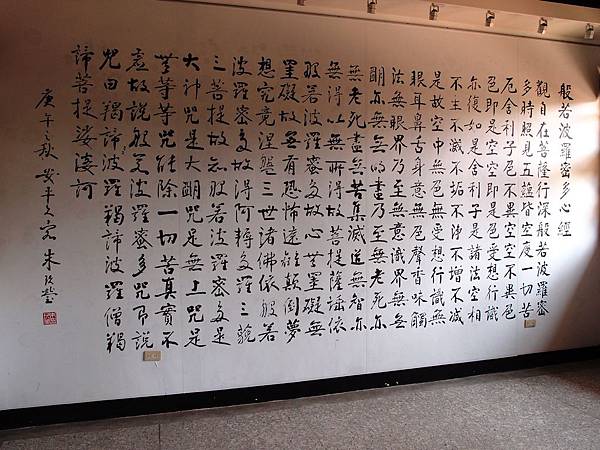 般若波羅密多心經
觀自在菩薩行深般若波羅密
多時照見五蘊皆空度一切苦
厄舍利子色不異空空不異色
色即是空空即是色受想行識
亦復如是舍利子是諸法空相
不生不滅不垢不淨不增不減
是故空中無色無受想行識無
眼耳鼻舌身意無色聲香味觸
法無眼界乃至無意識界無無
明亦無無明盡乃至無老死亦
無老死盡無苦集滅道無智亦
無得以無所得故菩提薩埵依
般若波羅密多故心無罣礙無
罣礙故無有恐怖遠離顛倒夢
想究竟涅槃三世諸佛依般若
波羅密多故得阿耨多羅三藐
三菩提故知般若波羅密多是
大神咒是大明咒是無上咒是
無等等咒能除一切苦真實不
虛故說般若波羅密多咒即說
咒曰羯諦波羅羯諦波羅僧羯
諦菩提娑婆訶
庚午之秋安平久客朱玖瑩